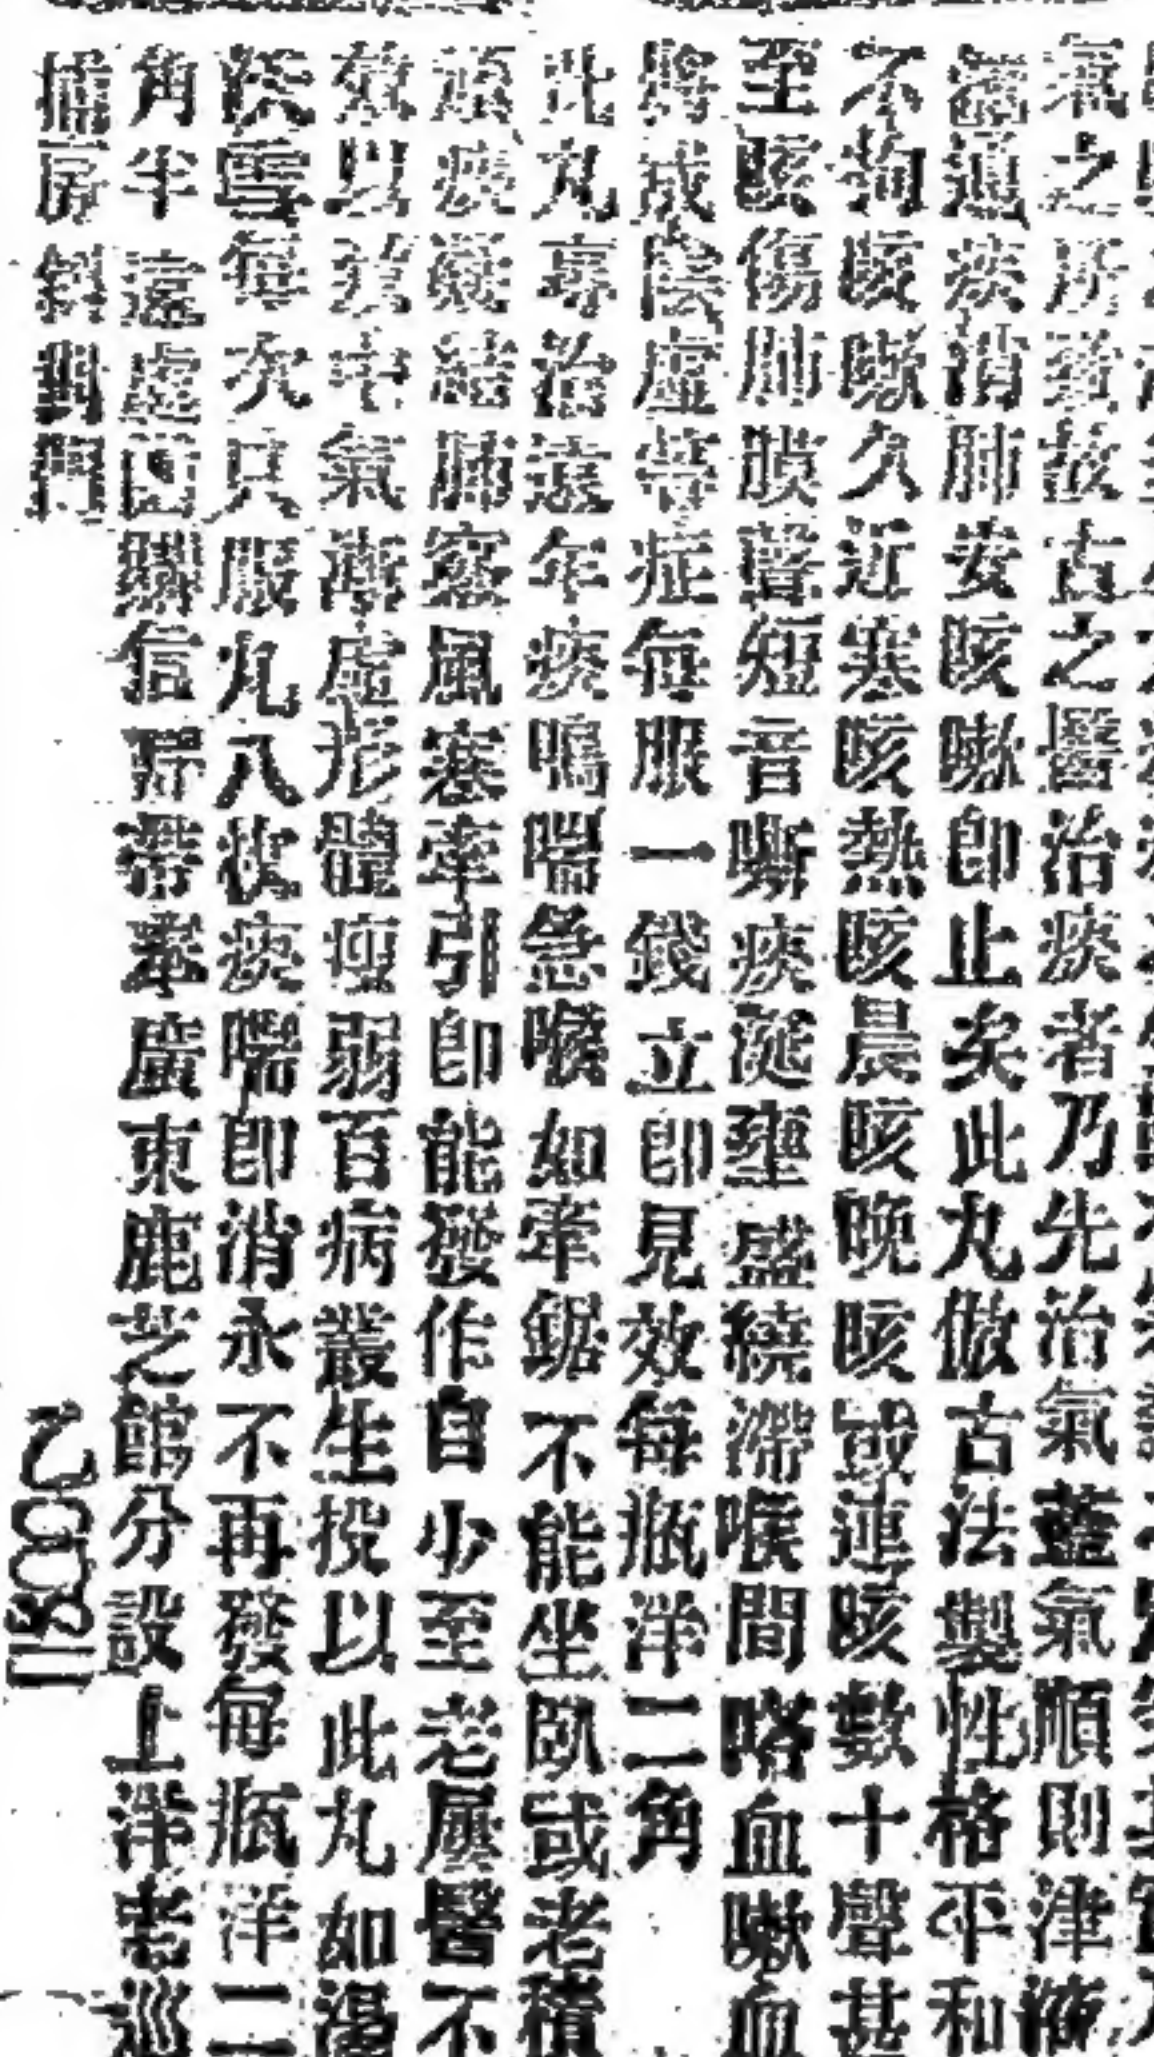 氣之所致故古之醫治痰者乃先治氣藍氣順則津液
通痰消肺安咳嗽卽止矣此丸倣古法製性格平和
不拘咳嗽久近寒咳熱咳晨咳晚咳或連咳數十聲甚
至咳傷肺膜聲短音嘶痰涎壅盛繞滯喉間咯血嗽血
將成陰虛等症每服一錢立卽見效每瓶洋二角
此丸專治遠年痰鳴喘急喉如牽鋸不能坐臥或老積
頑痰凝結肺竅風寒牽引卽能發作自少至老屢醫不
效以致中氣漸虛形體瘦弱百病叢生投以此丸如湯
沃雪每次只服丸八枚痰喘卽消永不再發每瓶洋二
角半 遠處函購信歸帶奉廣東鹿芝館分設上洋老巡
捕房斜對門